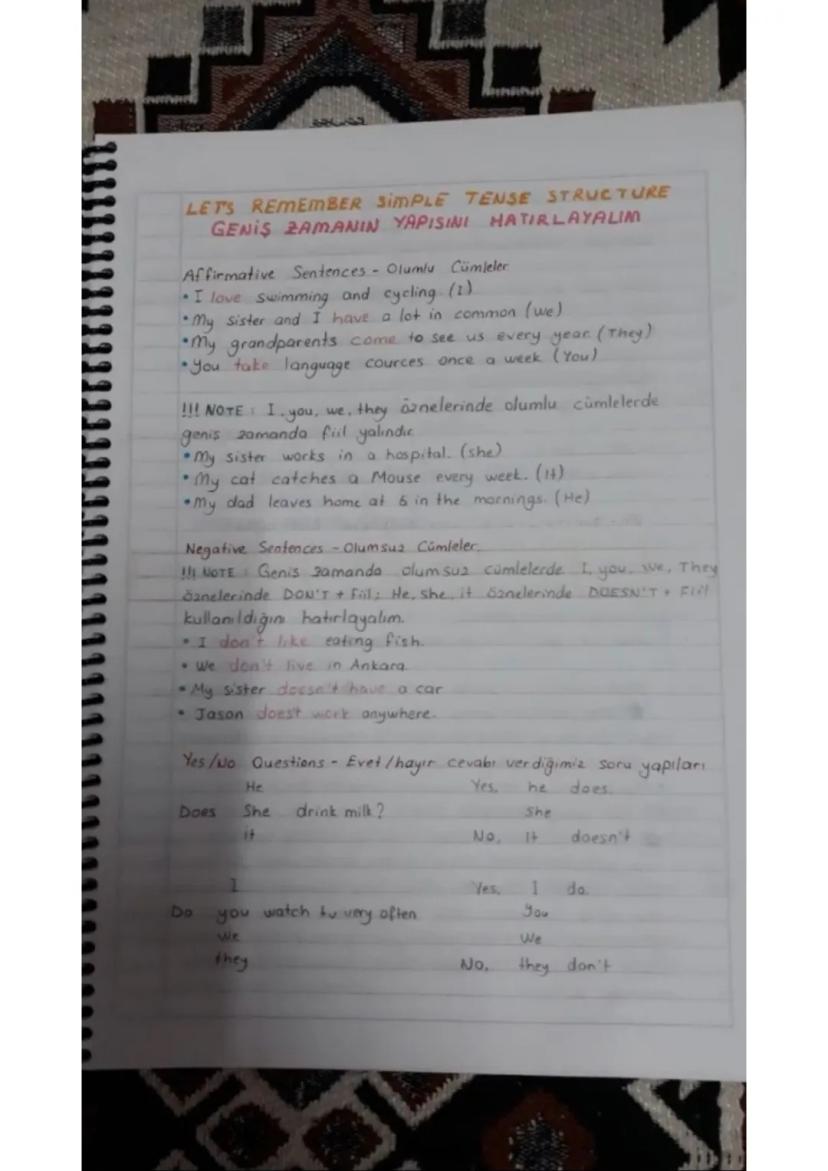 LET'S REMEMBER SiMPLE TENSE STRUCTURE
GENİŞ ZAMANIN YAPISINI HATIRLAYALIM
Affirmative Sentences - Olumlu Cümleler
• I love swimming and cycling. (I)
• My sister and I have a lot in common (we)
• My grandparents come to see us every year. (They)
• You take language cources once a week (You)
!!! NOTE : I, you, we, they öznelerinde olumlu cümlelerde
genis zamanda fiil yalındır
• My sister works in a hospital. (she)
• My cat catches a Mouse every week. (It)
• My dad leaves home at 6 in the mornings. (He)
Negative Sentences - Olumsuz Cümleler.
!!! NOTE : Genis zamanda olumsuz cümlelerde I, you, we, They
öznelerinde DON'T + Fiil; He, she, it öznelerinde DOESN'T + Fiil
kullanıldığını hatırlayalım.
• I don't like eating fish.
• We don't live in Ankara.
• My sister doesn't have a car
• Jason does't work anywhere.
Yes/No Questions - Evet/hayır cevabı verdiğimiz soru yapıları
He Yes, he does.
Does She drink milk? She
it No, It doesn't
I Yes, I do.
Do you watch tv very often You
we We
they No, they don't